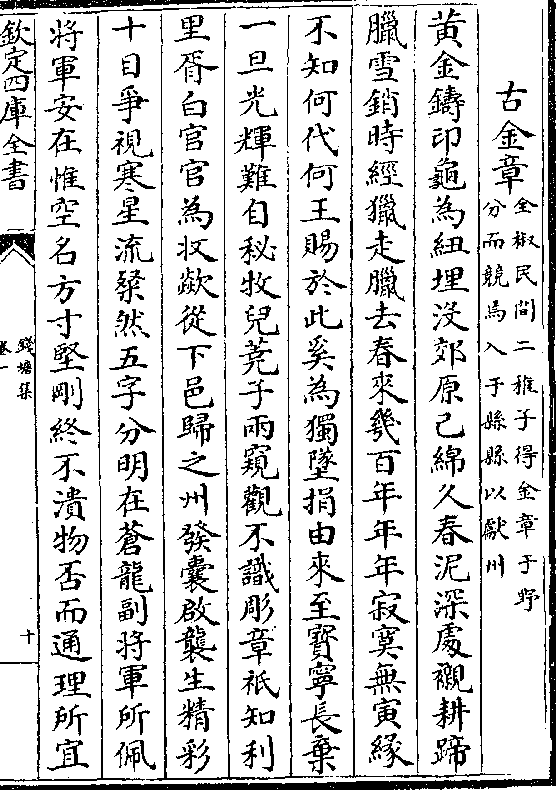 古金章
全椒民間二稚子得金章于野
分而競焉入于縣縣以獻州
黄金鑄印龜為紐埋没郊原已綿久春泥深處襯耕蹄
臘雪銷時經獵走臘去春來幾百年年年寂寞無寅緣
不知何代何王賜於此奚為獨墜捐由來至寶寧長棄
一旦光輝難自秘牧兒蕘子兩窺觀不識彫章祇知利
里胥白官官為收歘從下邑歸之州發囊啟襲生精彩
十目爭視寒星流粲然五字分明在蒼龍副將軍所佩
將軍安在惟空名方寸堅剛終不潰物否而通理所宜
欽定四庫全書
錢塘集
卷一
十